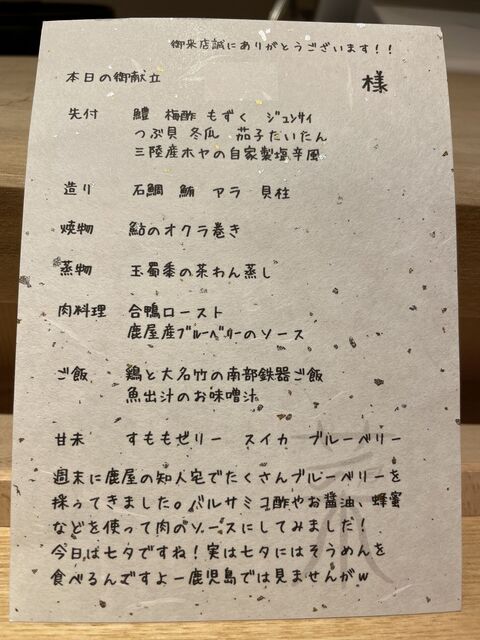 御来店誠にありがとうございます！！
本日の御献立 様
先付 鱧 梅酢 もずく ｼﾞｭﾝｻｲ
つぶ貝 冬瓜 茄子だいたん
三陸産ホヤの自家製塩辛風
造り 石鯛 鮪 アラ 貝柱
焼物 鮎のオクラ巻き
蒸物 玉蜀黍の茶わん蒸し
肉料理 合鴨ロースト
鹿屋産ﾌﾞﾙｰﾍﾞﾘｰのソース
ご飯 鶏と大名竹の南部鉄器ご飯
魚出汁のお味噌汁
甘未 すももゼリー スイカ ブルーベリー
週末に鹿屋の知人宅でたくさんブルーベリーを
採ってきました。バルサミコ酢やお醤油、蜂蜜
などを使って肉のソースにしてみました！
今日は七夕ですね！実は七夕にはそうめんを
食べるんですよー鹿児島では見ませんがw